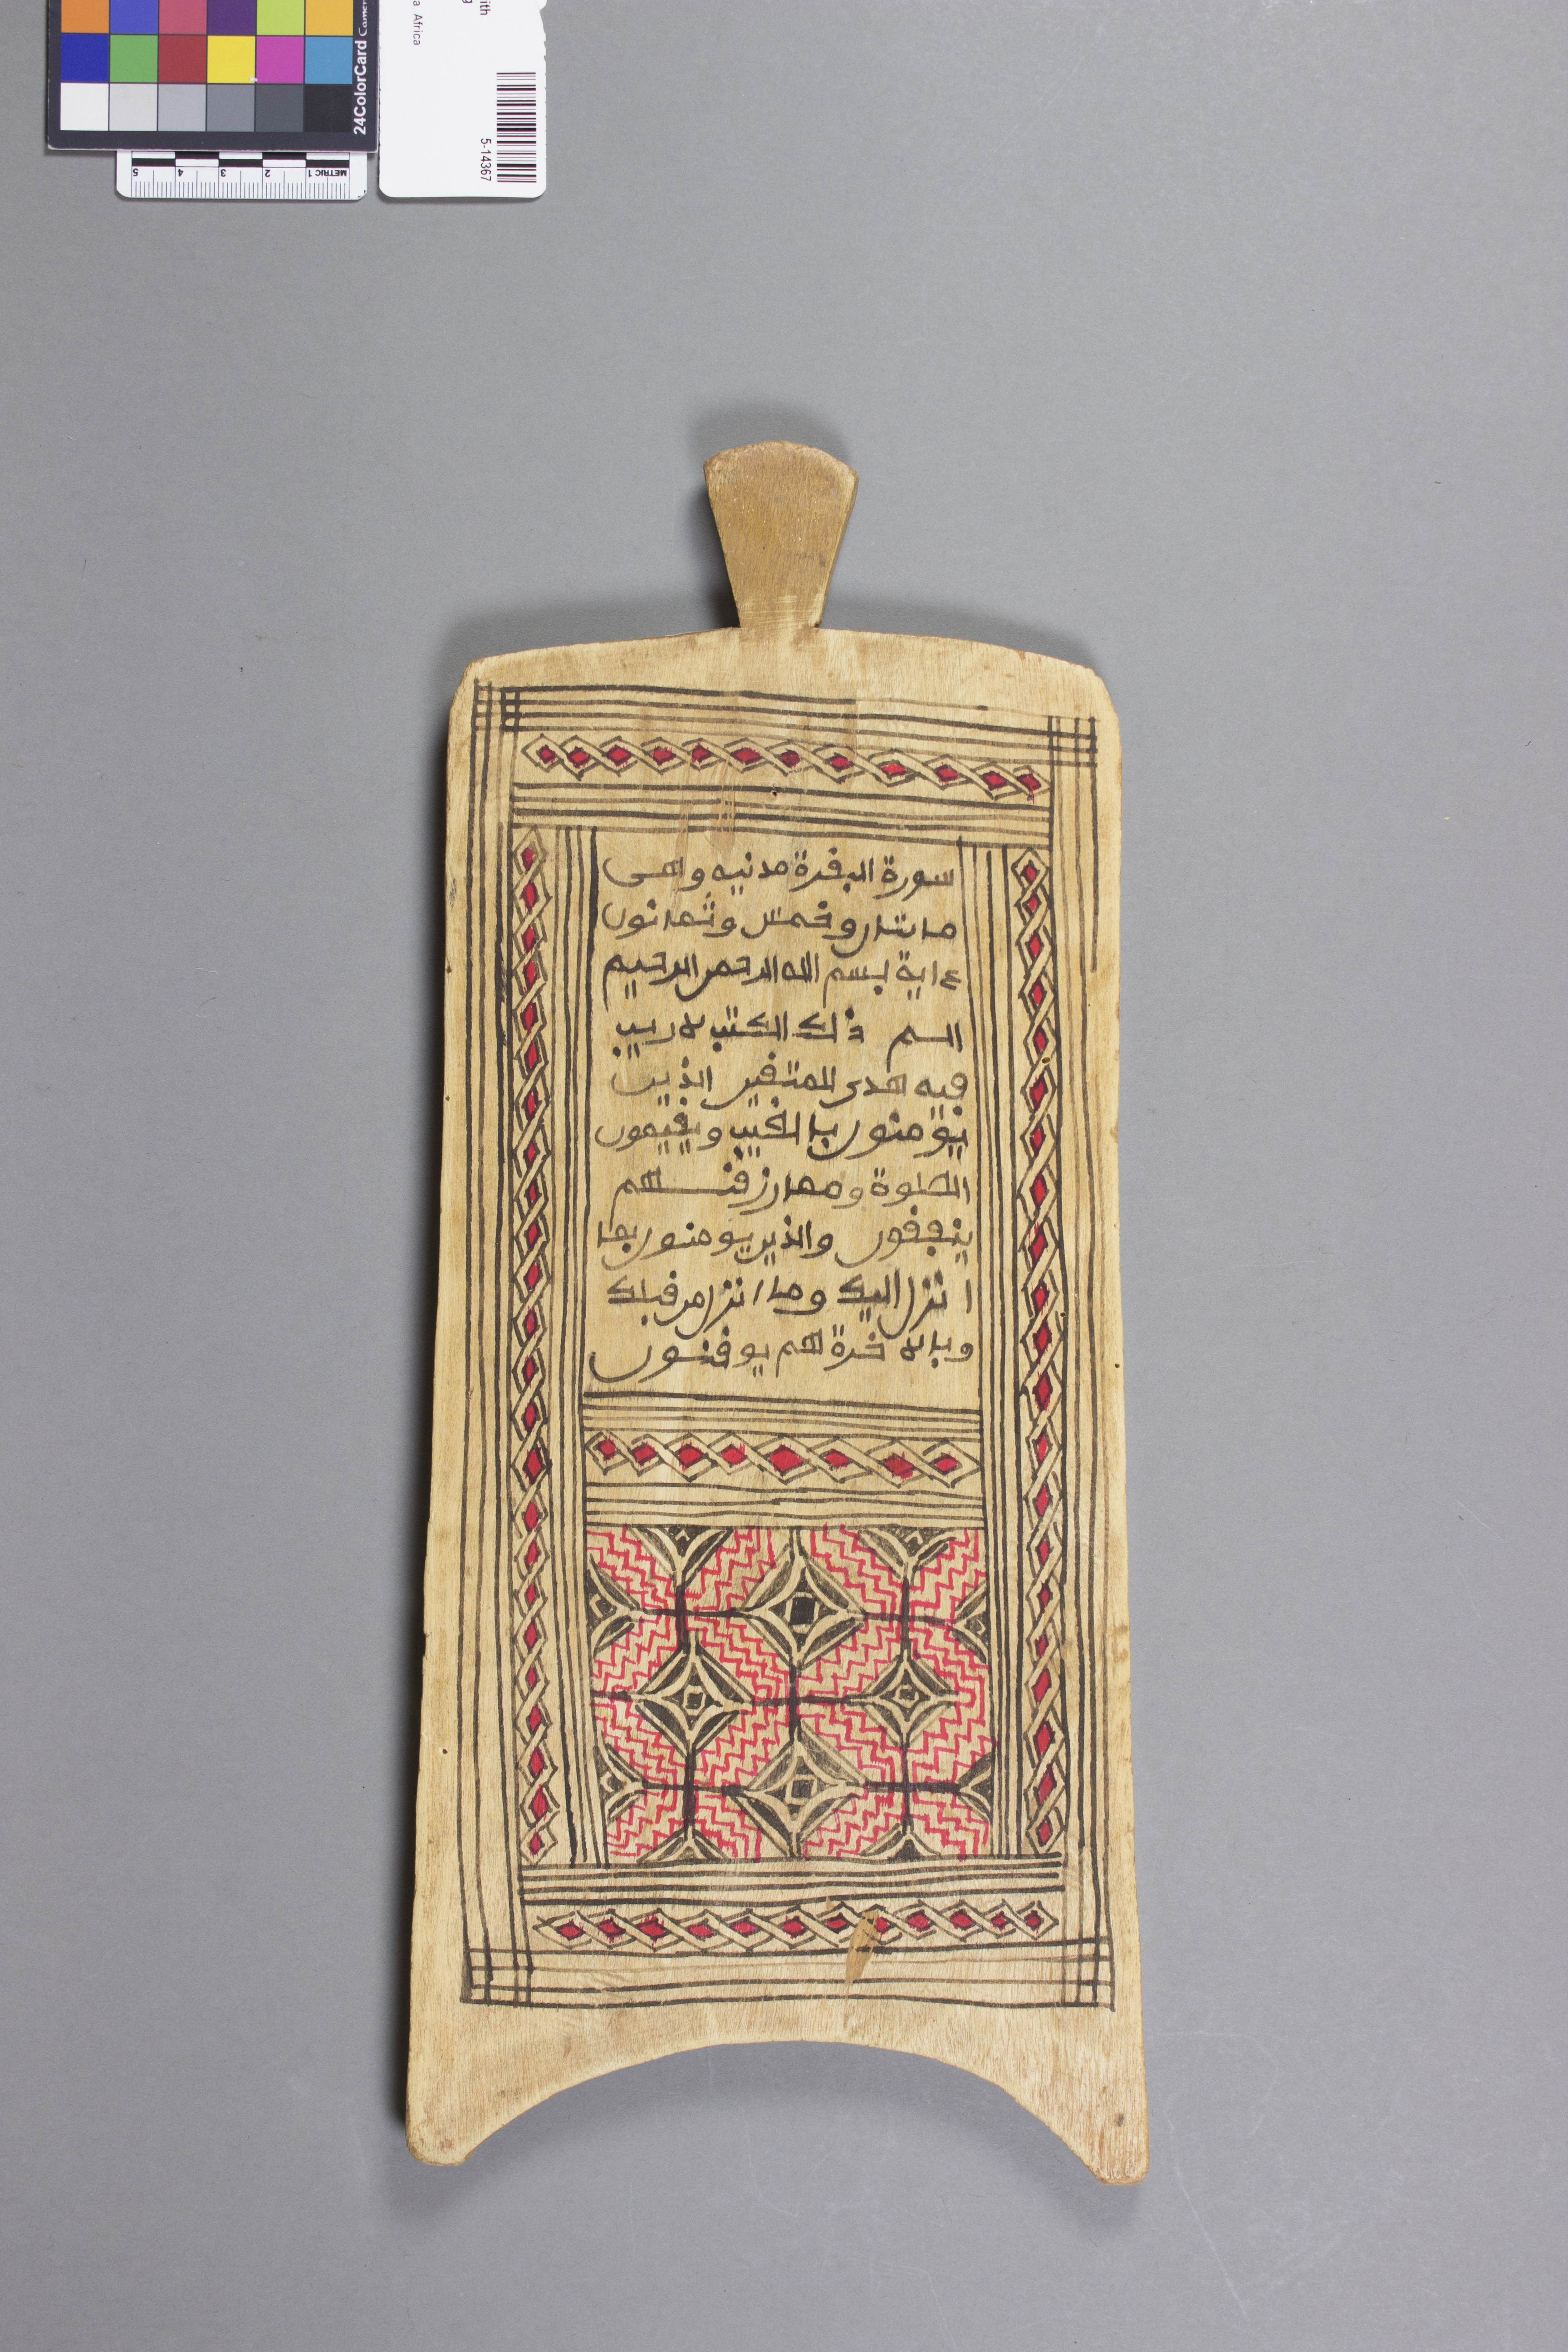 ith
g
a Africa
5-14367
24ColorCard
METRIC 1 2 3 4 5
سورة البقرة مدنيه وهى
ماىتىان وخمس وثمانون
ءاية بسم الله الرحمن الرحيم
الـم ذلك الكتب لا ريب
فيه هدى للمتقين الذين
يومنون بالغيب ويقيمون
الصلوة ومما رزقنـهم
ينفقون والذين يومنون بما
انزل اليك وما انزل من قبلك
وبالاخرة هم يوقنون